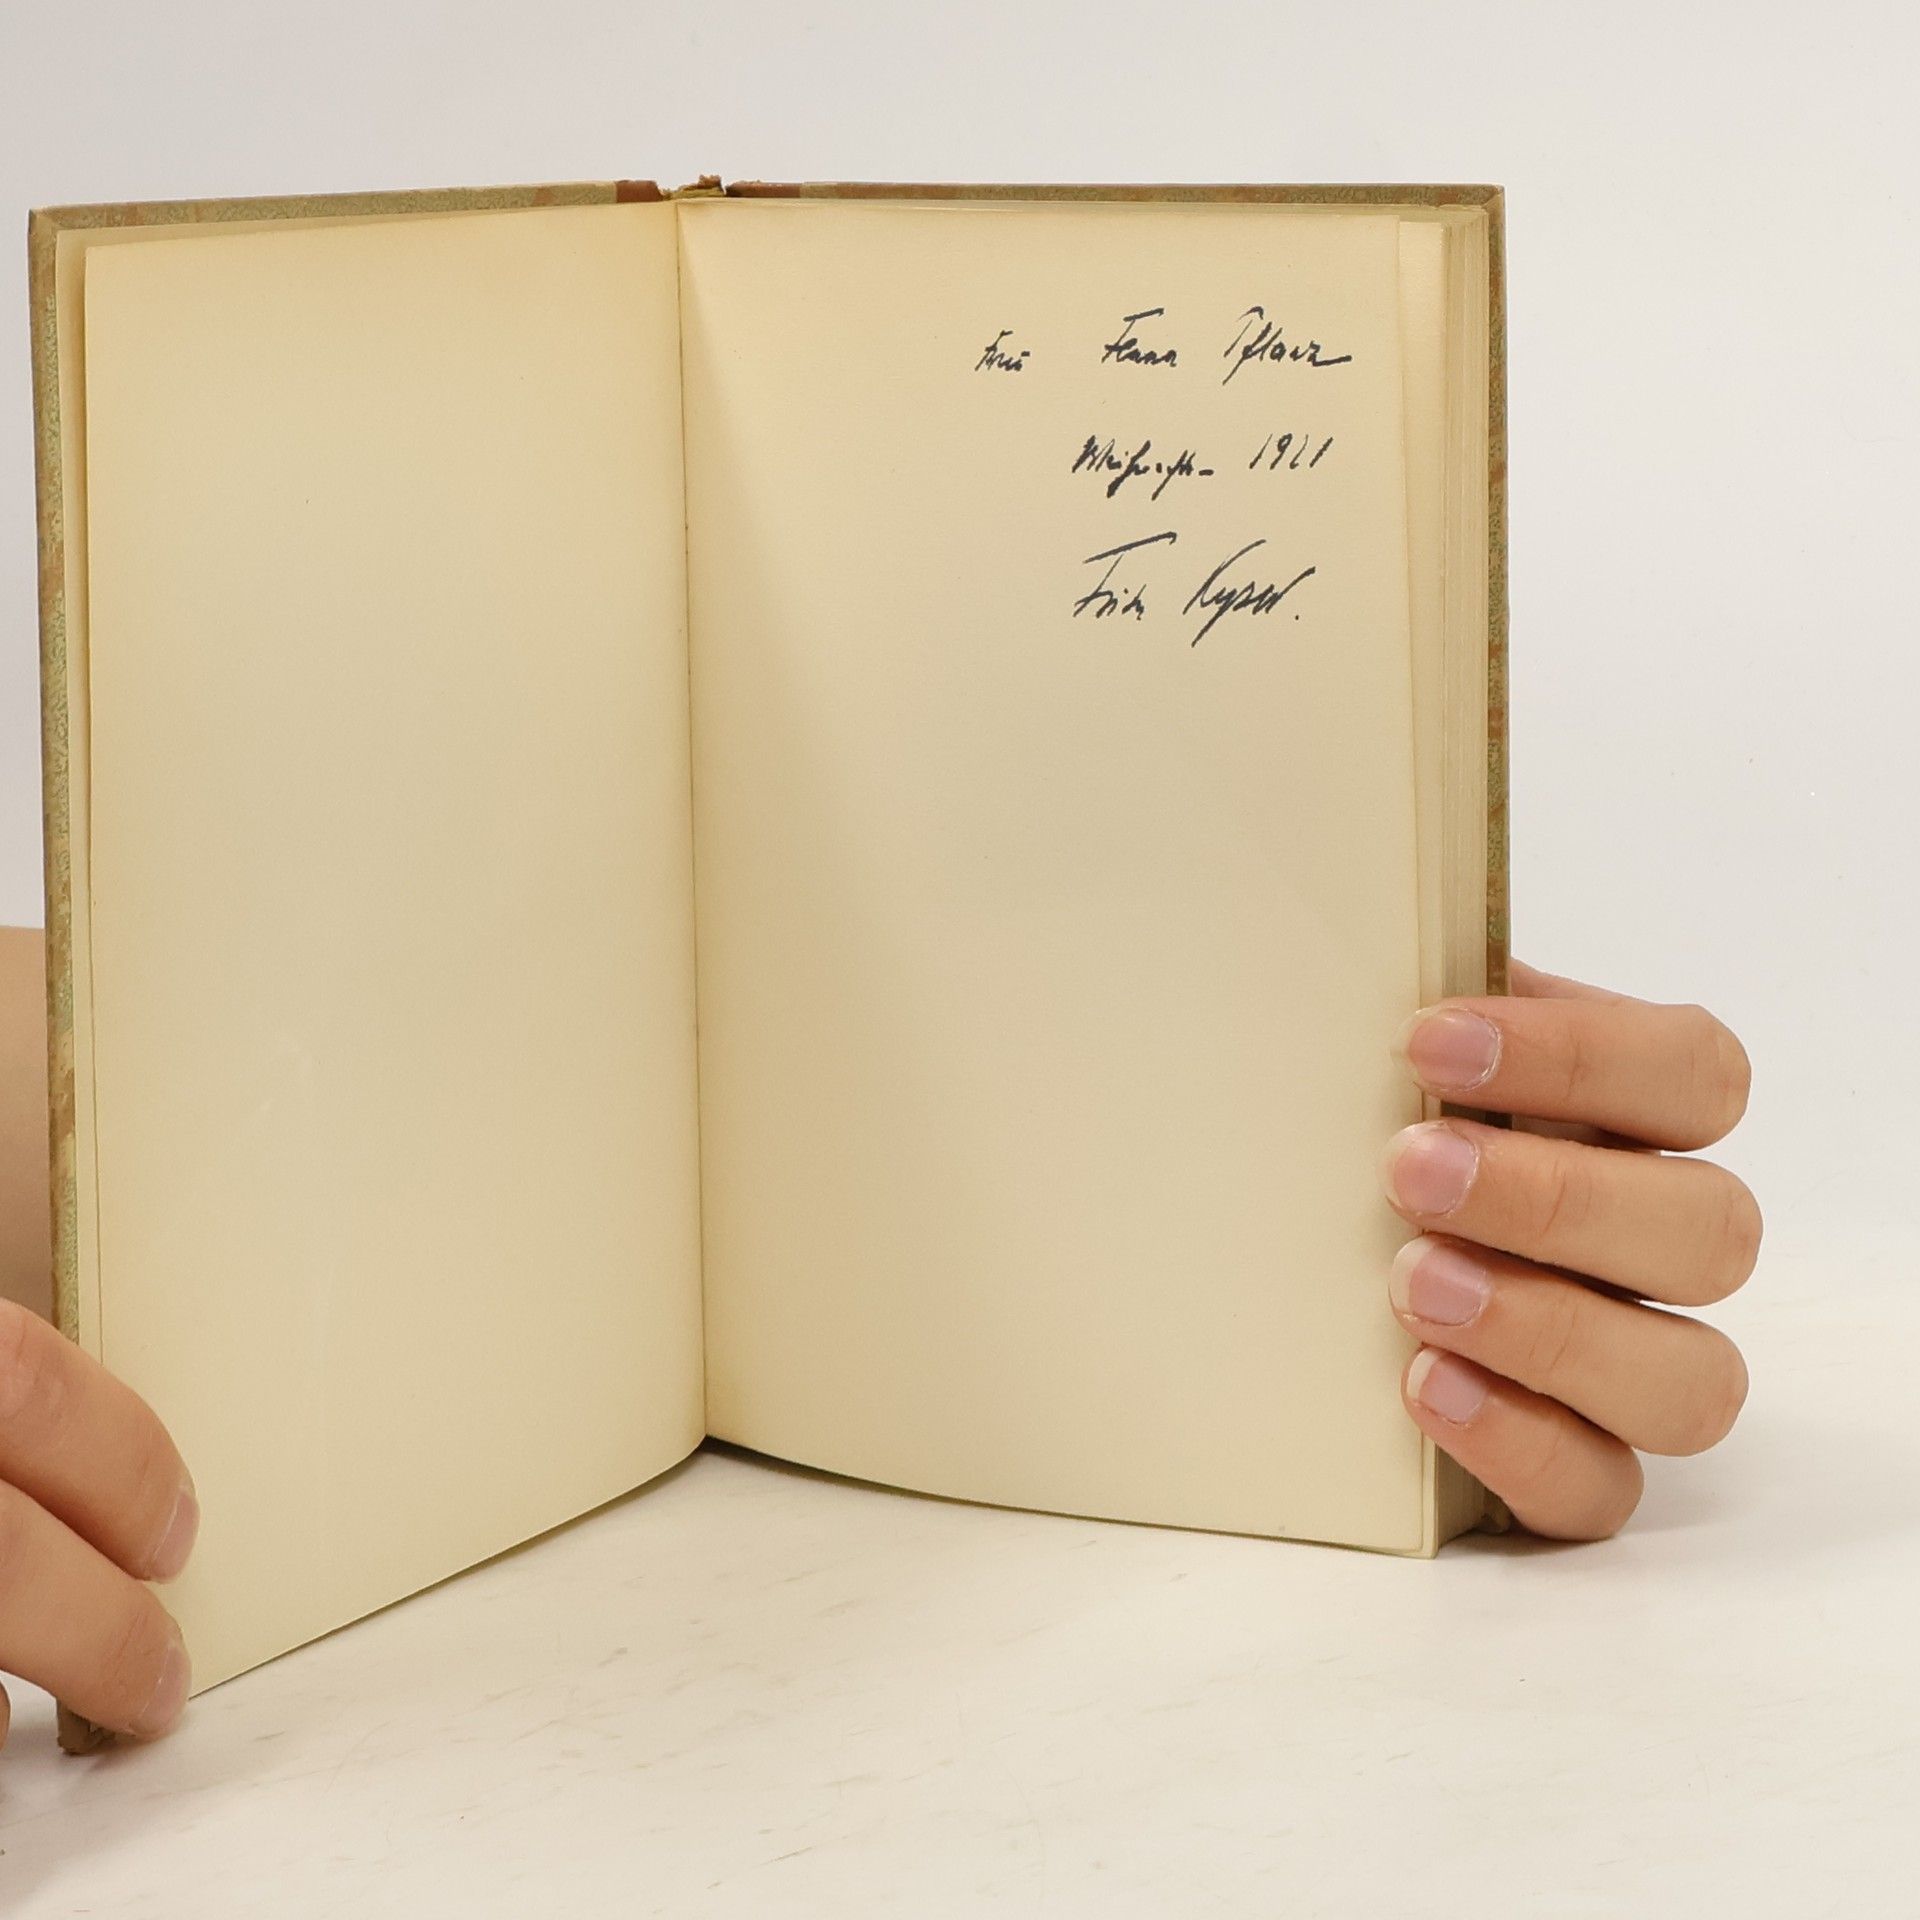 Frau Pflanz
Weihnachten 1921
Fritz Kyser.